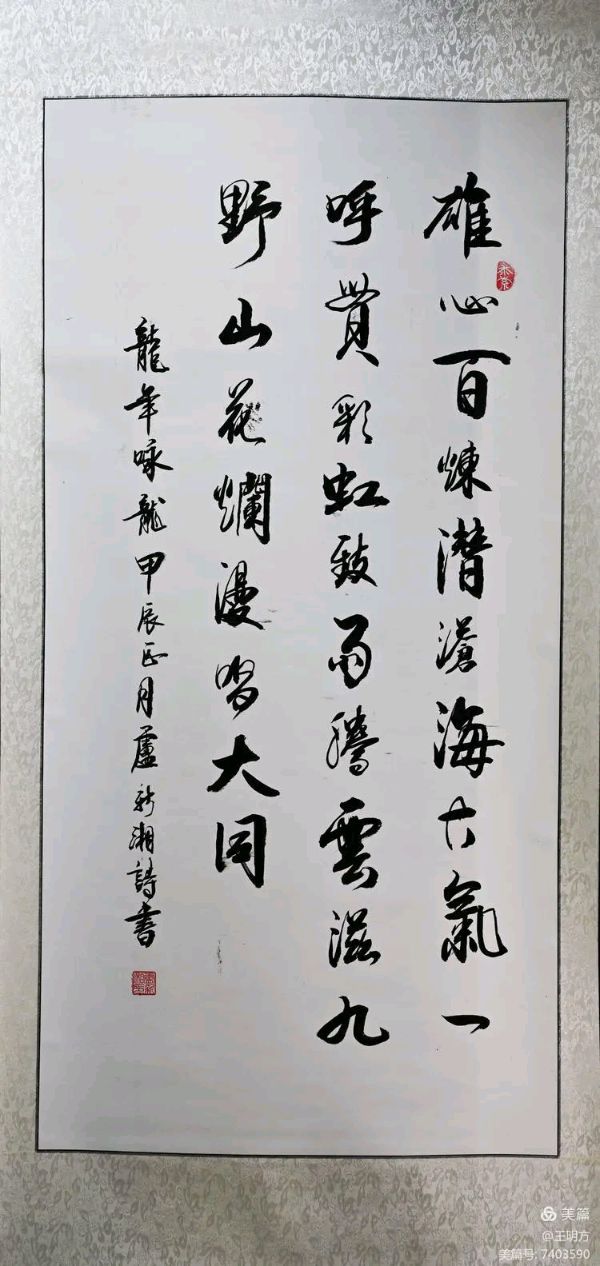 雄心百煉潛滄海大氣一
呼貫彩虹致雨騰雲滋九
野山花爛漫皆大同
龍年咏龍甲辰正月盧新湘詩書
美篇
@王明方
美篇号: 7403590